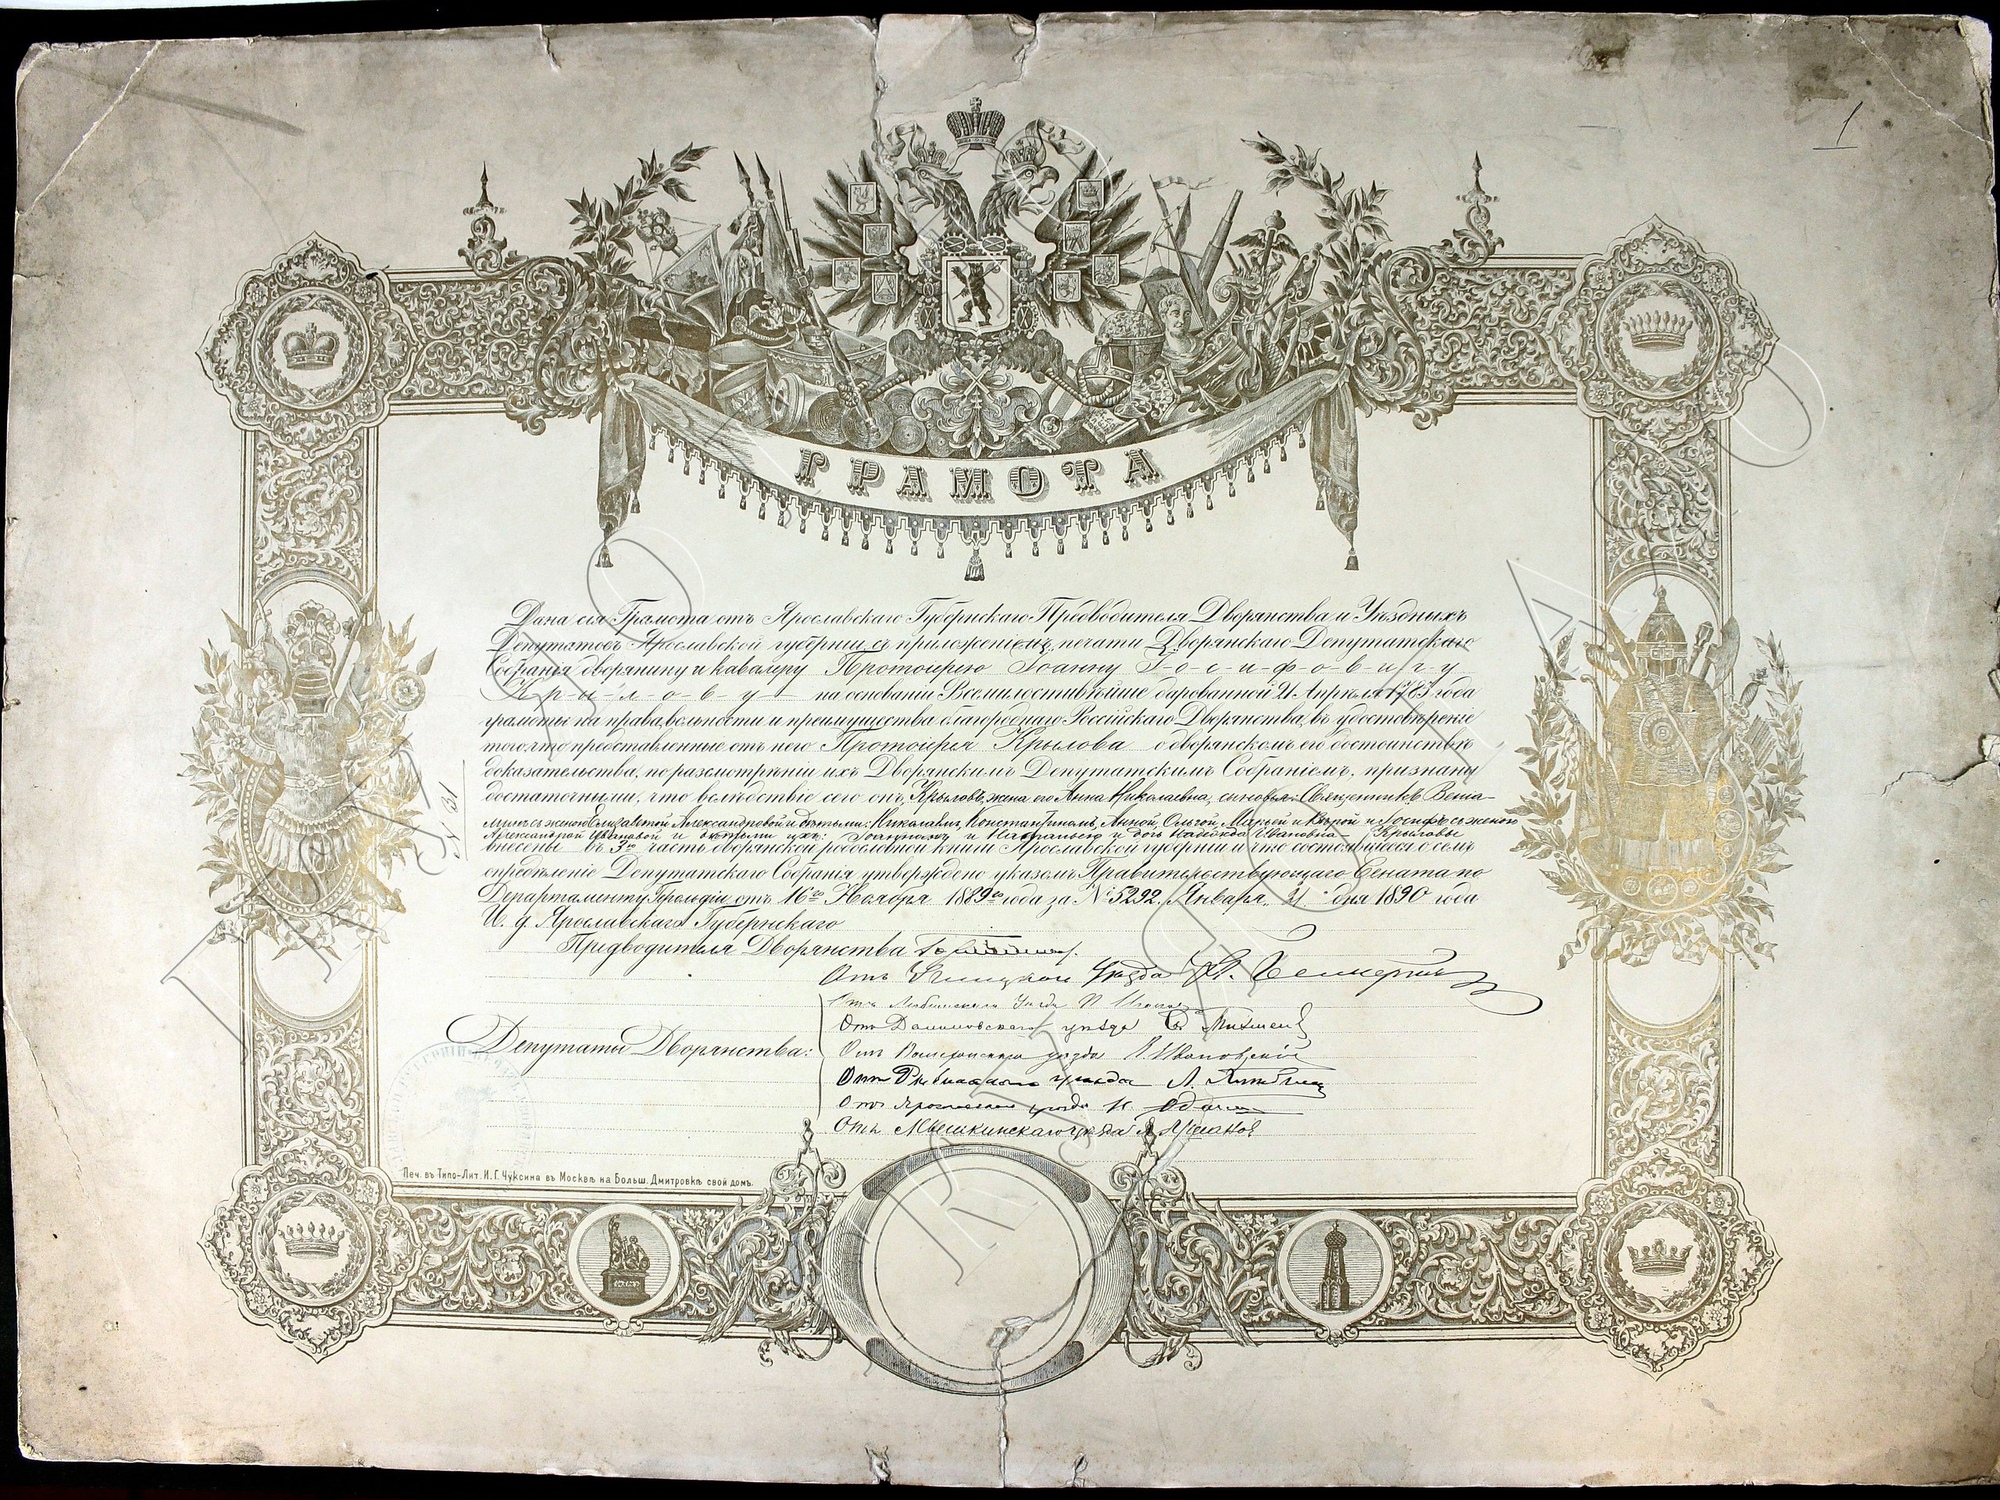 1
ГРАМОТА
Дана сія Грамота отъ Ярославскаго Губернскаго Предводителя Дворянства и Уѣздныхъ
Депутатовъ Ярославской губерніи съ приложеніемъ печати Дворянскаго Депутатскаго
Собранія дворянину и кавалеру Протоіерею Іоанну І-о-с-и-ф-о-в-и-ч-у
К-р-ы-л-о-в-у на основаніи Всемилостивѣйше дарованной 21 Апрѣля 1785 года
грамоты на права, вольности и преимущества благороднаго Россійскаго Дворянства, въ удостовѣреніе
того, что представленныя отъ него Протоіерея Крылова о дворянскомъ его достоинствѣ
доказательства, по разсмотрѣніи ихъ Дворянскимъ Депутатскимъ Собраніемъ, признаны
достаточными, что вслѣдствіе сего онъ, Крыловъ, жена его Анна Николаевна, сыновья: Священникъ Веніа-
минъ съ женою Елизаветой Александровой и дѣтьми: Николаемъ, Константиномъ, Анной, Ольгой, Марьей и Вѣрой и Іосифъ съ женою
Александрой Ивановой и дѣтьми ихъ: и Натальею и дочь Надежда Ивановна Крыловы
внесены въ 3ю часть дворянской родословной книги Ярославской губерніи и что состоявшееся о семъ
опредѣленіе Депутатскаго Собранія утверждено указомъ Правительствующаго Сената по
Департаменту Герольдіи отъ 16го Ноября 1889го года за № 5292. Января 31 дня 1890 года
№ 131
И. д. Ярославскаго Губернскаго
Предводителя Дворянства
Отъ Уѣзда
Депутаты Дворянства:
Отъ Любимскаго Уѣзда
Отъ Даниловскаго уѣзда
Отъ Пошехонскаго уѣзда
Отъ Рыбинскаго уѣзда Л.
Отъ Ярославскаго уѣзда
Отъ Мышкинскаго уѣзда
Печ. въ Типо-Лит. И. Г. Чуксина въ Москвѣ на Больш. Дмитровкѣ свой домъ.